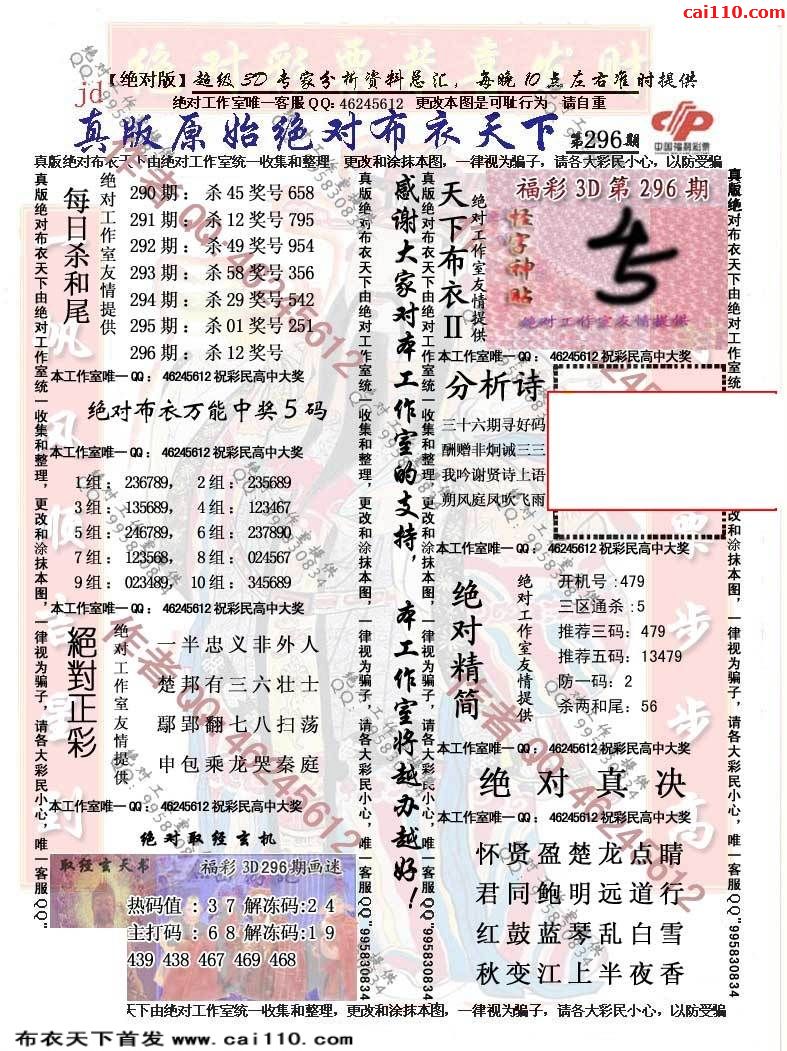 cai110.com
【绝对版】超级3D专家分析资料总汇，每晚10点左右准时提供
jd
绝对工作室唯一客服QQ:46245612 更改本图是可耻行为 请自重
真版原始绝对布衣天下 第296期
中国福利彩票
真版绝对布衣天下由绝对工作室统一收集和整理，更改和涂抹本图，一律视为骗子，请各大彩民小心，以防受骗
真版绝对布衣天下由绝对工作室统一收集和整理，更改和涂抹本图，一律视为骗子，请各大彩民小心，唯一客服QQ"
每日杀和尾
绝对工作室友情提供
290期：杀45奖号658
291期：杀12奖号795
292期：杀49奖号954
293期：杀58奖号356
294期：杀29奖号542
295期：杀01奖号251
296期：杀12奖号
本工作室唯一QQ：46245612祝彩民高中大奖
绝对布衣万能中奖5码
本工作室唯一QQ：46245612祝彩民高中大奖
1组：236789， 2组：235689
3组：135689， 4组：123467
5组：246789， 6组：237890
7组：123568， 8组：024567
9组：023489， 10组：345689
本工作室唯一QQ：46245612祝彩民高中大奖
絕對正彩
绝对工作室友情提供
一半忠义非外人
楚邦有三六壮士
鄢郢翻七八扫荡
申包乘龙哭秦庭
本工作室唯一QQ：46245612祝彩民高中大奖
绝对取经玄机
取经玄天书
福彩3D296期画迷
热码值：37解冻码:24
主打码：68解冻码:19
439 438 467 469 468
真版绝对布衣天下由绝对工作室统一收集和整理，更改和涂抹本图，一律视为骗子，请各大彩民小心，唯一客服QQ"995830834
感谢大家对本工作室的支持，本工作室将越办越好！
真版绝对布衣天下由绝对工作室统一收集和整理，更改和涂抹本图，一律视为骗子，请各大彩民小心，唯一客服QQ"
天下布衣II
绝对工作室友情提供
福彩3D第296期
怪字神贴
绝对工作室友情提供
本工作室唯一QQ：46245612祝彩民高中大奖
分析诗
三十六期寻好码
酬赠非炯诫三三
我吟谢贤诗上语
朔风庭风吹飞雨
本工作室唯一QQ：46245612祝彩民高中大奖
绝对精简
绝对工作室友情提供
开机号:479
三区通杀:5
推荐三码：479
推荐五码：13479
防一码：2
杀两和尾：56
本工作室唯一QQ：46245612祝彩民高中大奖
绝对真决
本工作室唯一QQ：46245612祝彩民高中大奖
怀贤盈楚龙点睛
君同鲍明远道行
红鼓蓝琴乱白雪
秋变江上半夜香
真版绝对布衣天下由绝对工作室统一
改和涂抹本图，一律视为骗子，请各大彩民小心，唯一客服QQ"995830834
天下由绝对工作室统一收集和整理，更改和涂抹本图，一律视为骗子，请各大彩民小心，以防受骗
布衣天下首发 www.cai110.com